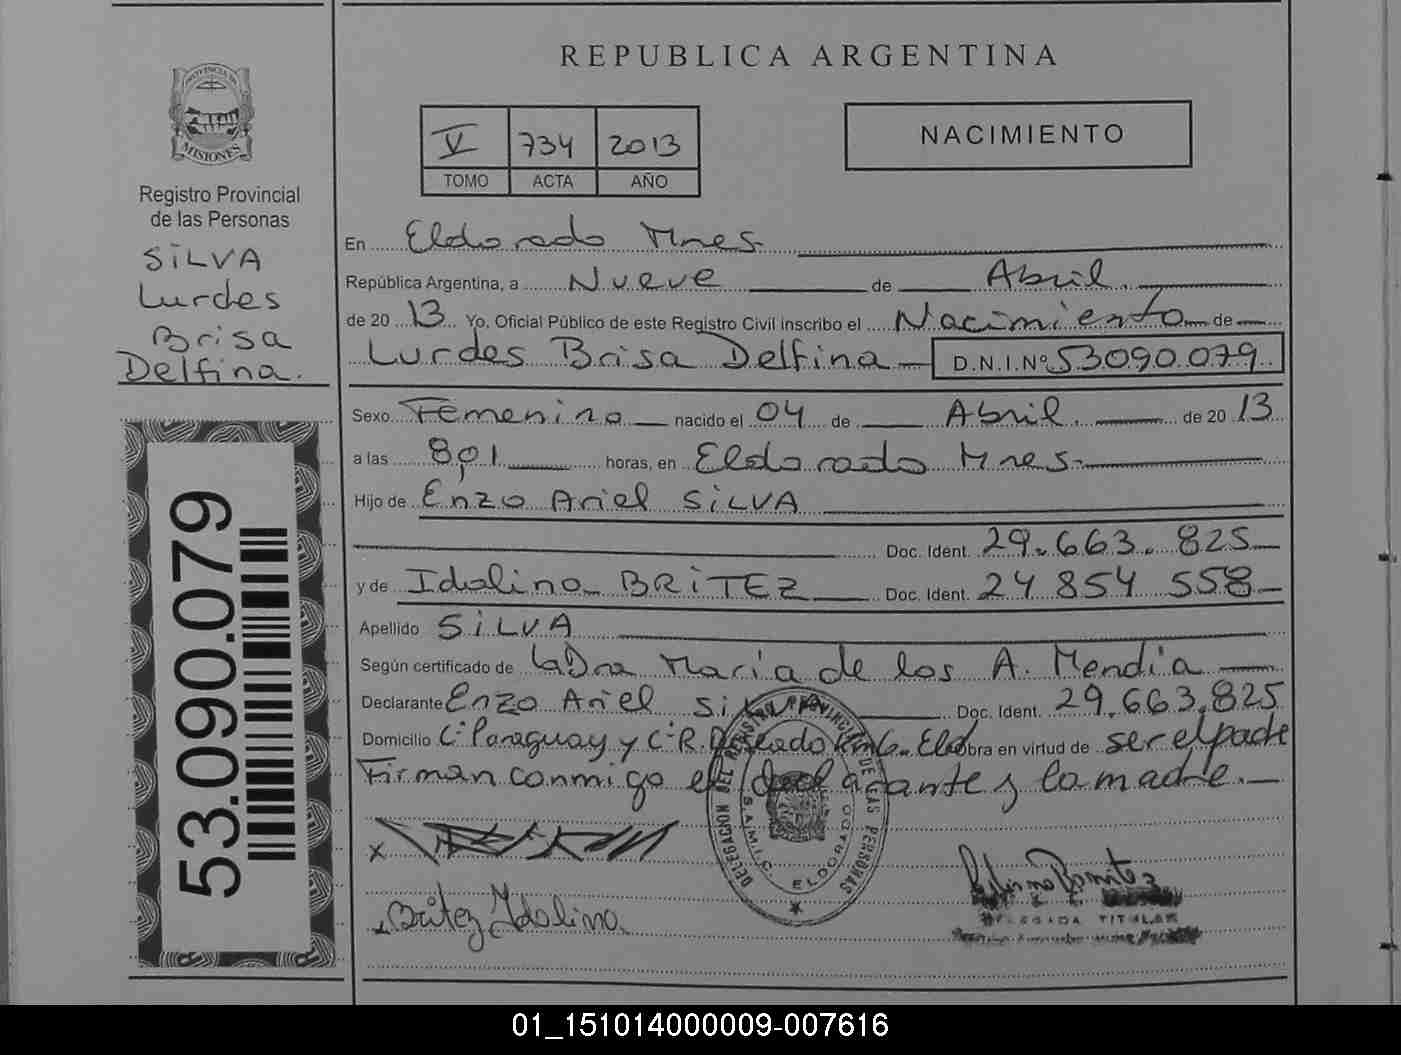 REPUBLICA ARGENTINA
PROVINCIA DE
MISIONES
Registro Provincial
de las Personas
SILVA
Lurdes
Brisa
Delfina.
53.090.079
V 734 2013
TOMO ACTA AÑO
NACIMIENTO
En Eldorado Mnes.
República Argentina, a Nueve de Abril.
de 20 13 Yo, Oficial Público de este Registro Civil inscribo el Nacimiento de
Lurdes Brisa Delfina D.N.I.Nº 53090.079
Sexo Femenino nacido el 04 de Abril. de 20 13
a las 8,01 horas, en Eldorado Mnes.
Hijo de Enzo Ariel SILVA
Doc. Ident. 29.663.825
y de Idalina BRITEZ Doc. Ident. 24 854 558
Apellido SILVA
Según certificado de la Dra Maria de los A. Mendia
Declarante Enzo Ariel Silva Doc. Ident. 29.663.825
Domicilio C. Paraguay y C. R. Km6. Eld obra en virtud de ser el padre
Firman conmigo el declarante y la madre.
DELEGACION DEL REGISTRO PROVINCIAL DE LAS PERSONAS
S.A.M.I.C. ELDORADO
x
Britez Idalina
DELEGADA TITULAR
01_151014000009-007616